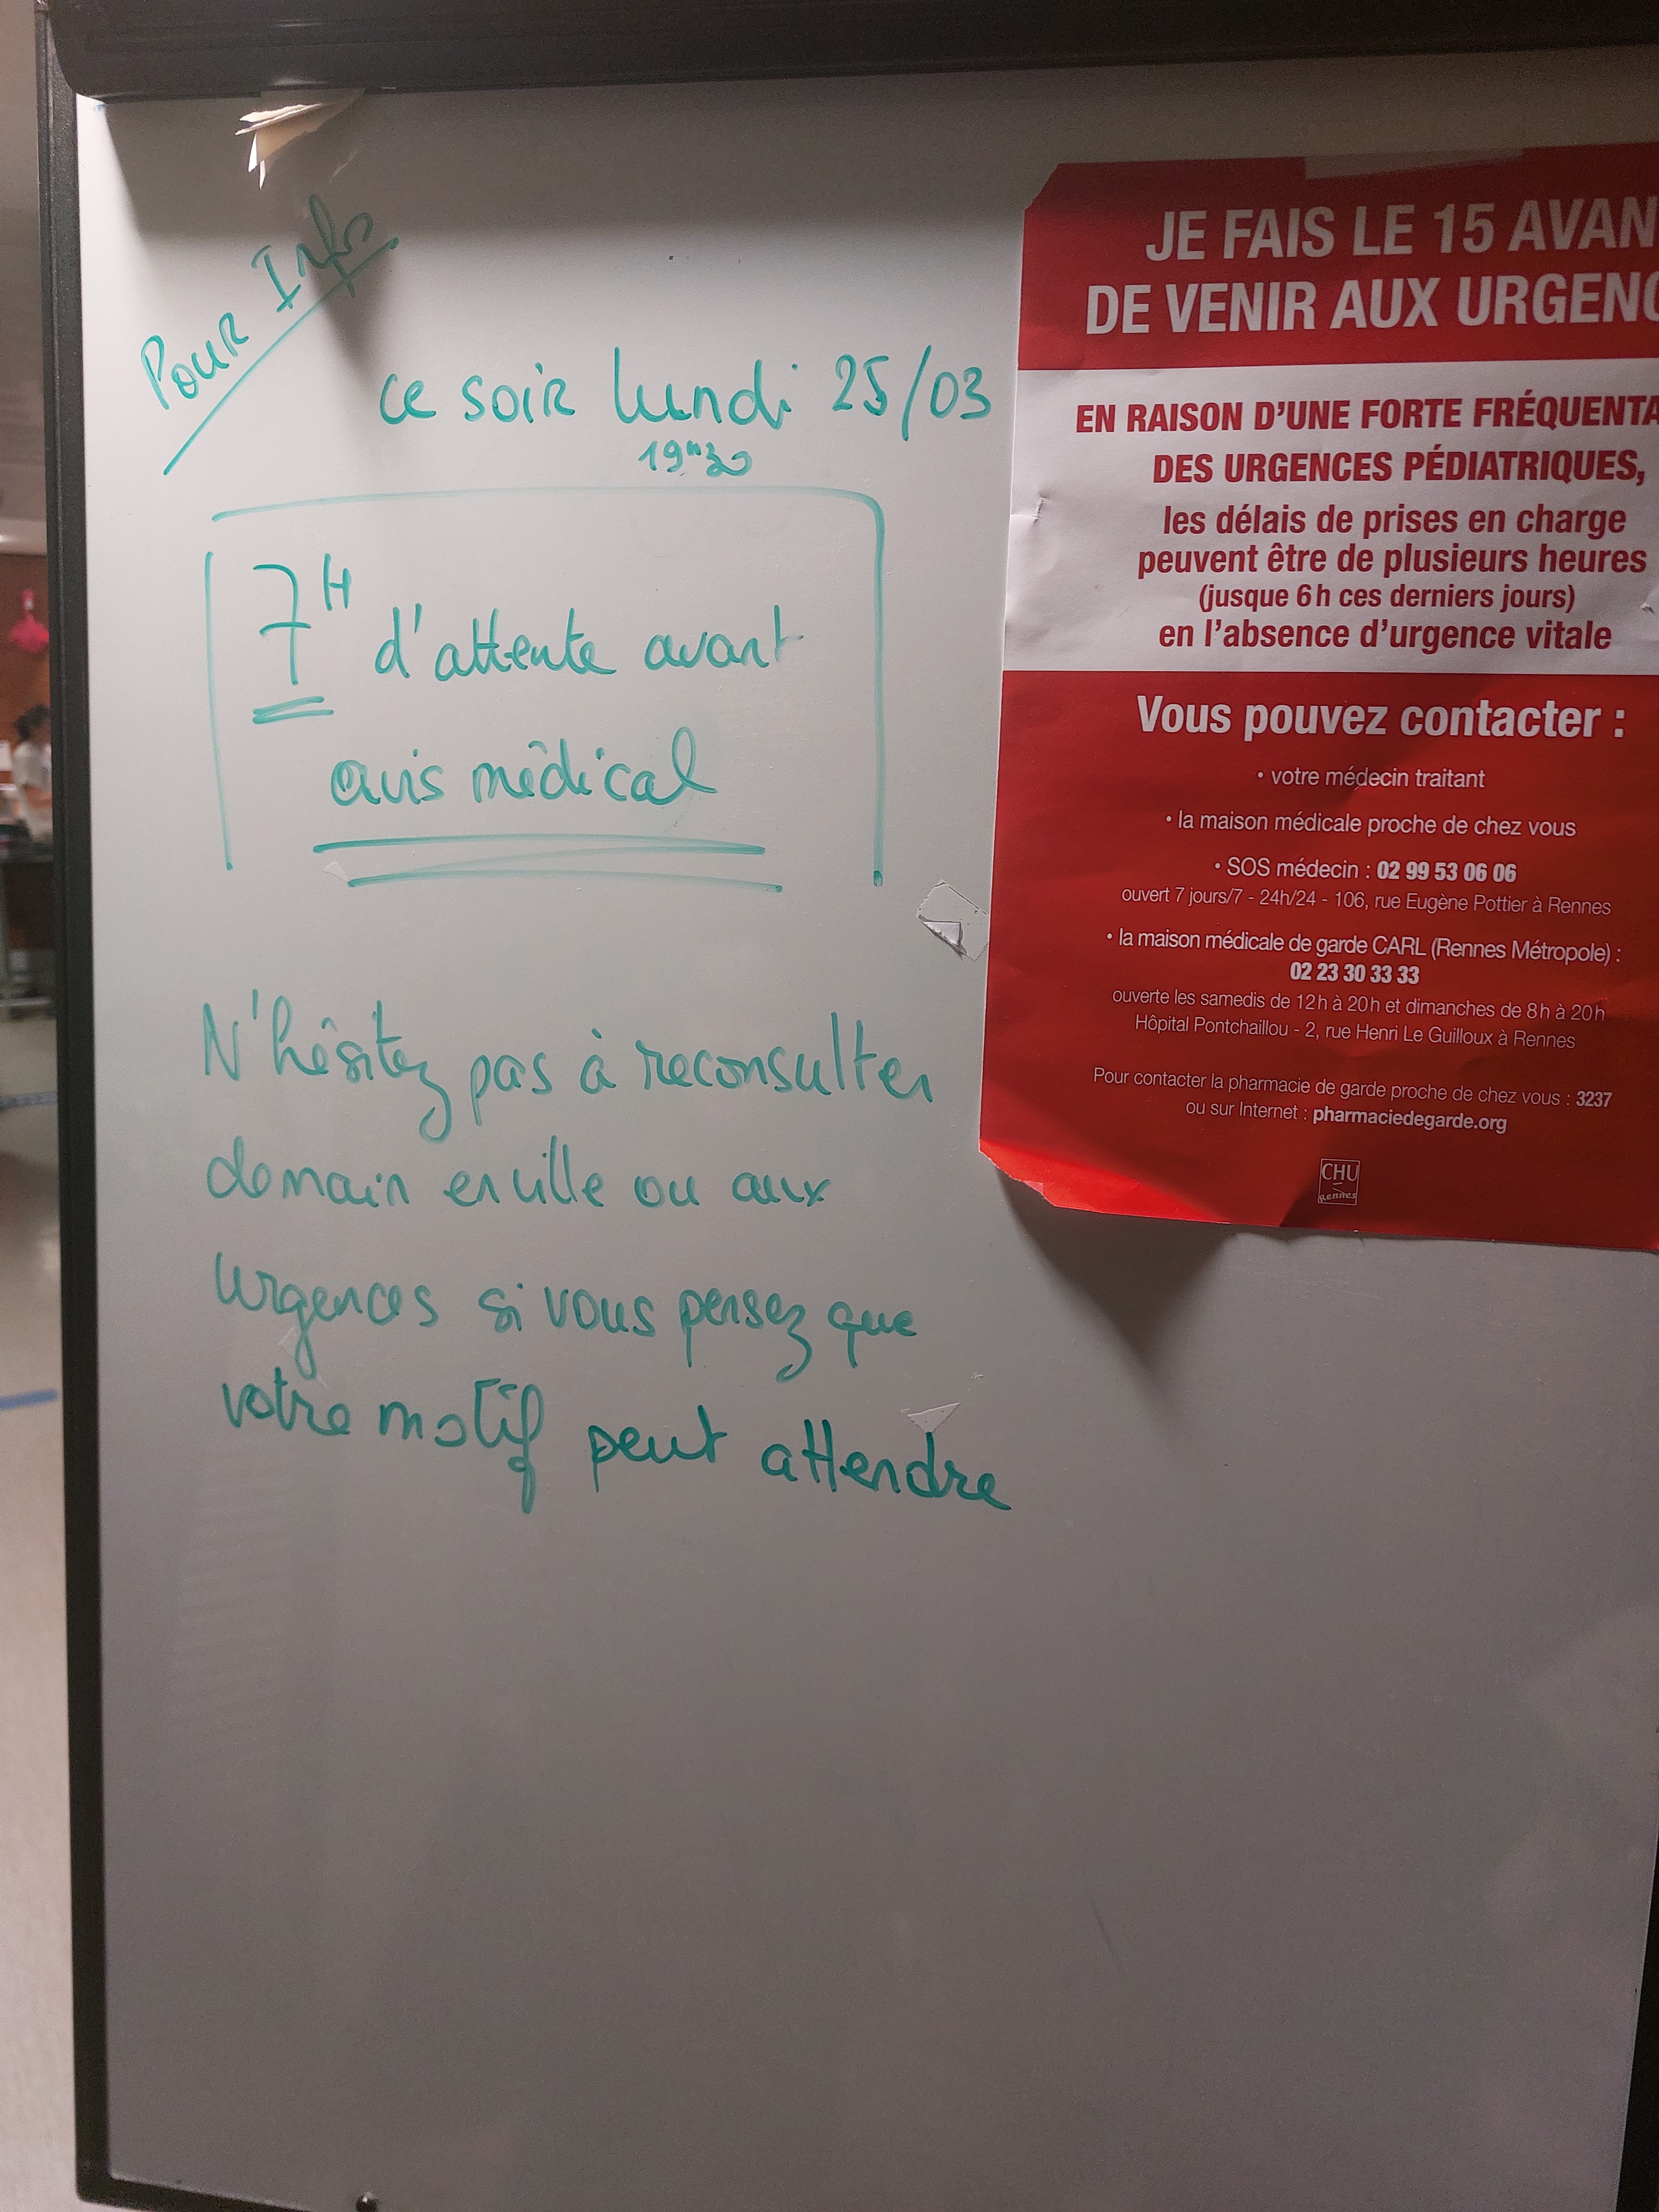 Pour Info
ce soir lundi 25/03
19h30
7H d'attente avant
avis médical
N'hésitez pas à reconsulter
demain en ville ou aux
urgences si vous pensez que
votre motif peut attendre
JE FAIS LE 15 AVAN
DE VENIR AUX URGENC
EN RAISON D'UNE FORTE FRÉQUENTA
DES URGENCES PÉDIATRIQUES,
les délais de prises en charge
peuvent être de plusieurs heures
(jusque 6 h ces derniers jours)
en l'absence d'urgence vitale
Vous pouvez contacter :
• votre médecin traitant
• la maison médicale proche de chez vous
• SOS médecin : 02 99 53 06 06
ouvert 7 jours/7 - 24h/24 - 106, rue Eugène Pottier à Rennes
• la maison médicale de garde CARL (Rennes Métropole) :
02 23 30 33 33
ouverte les samedis de 12 h à 20 h et dimanches de 8 h à 20 h
Hôpital Pontchaillou - 2, rue Henri Le Guilloux à Rennes
Pour contacter la pharmacie de garde proche de chez vous : 3237
ou sur Internet : pharmaciedegarde.org
CHU
Rennes